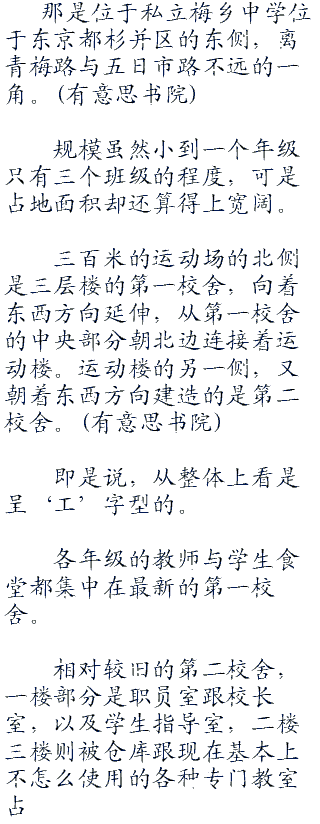 那是位于私立梅乡中学位
于东京都杉并区的东侧，离
青梅路与五日市路不远的一
角。(有意思书院)
规模虽然小到一个年级
只有三个班级的程度，可是
占地面积却还算得上宽阔。
三百米的运动场的北侧
是三层楼的第一校舍，向着
东西方向延伸，从第一校舍
的中央部分朝北边连接着运
动楼。运动楼的另一侧，又
朝着东西方向建造的是第二
校舍。(有意思书院)
即是说，从整体上看是
呈‘工’字型的。
各年级的教师与学生食
堂都集中在最新的第一校
舍。
相对较旧的第二校舍，
一楼部分是职员室跟校长
室，以及学生指导室，二楼
三楼则被仓库跟现在基本上
不怎么使用的各种专门教室
占